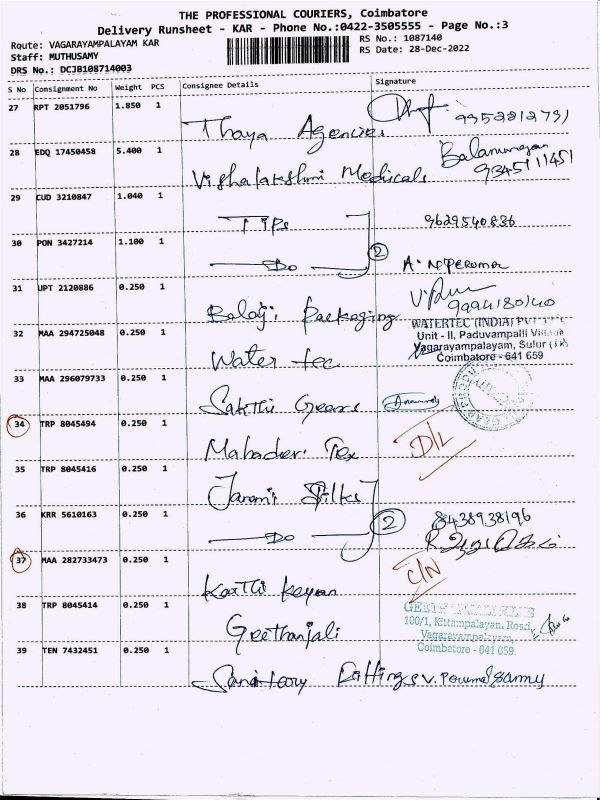 THE PROFESSIONAL COURIERS, Coimbatore
Delivery Runsheet - KAR - Phone No.:0422-3505555 - Page No.:3
Route: VAGARAYAMPALAYAM KAR
RS No.: 1087140
Staff: MUTHUSAMY
RS Date: 28-Dec-2022
DRS No.: DCJB108714003
S No Consignment No Weight PCS Consignee Details Signature
27 RPT 2051796 1.850 1
Thaya Agencies
28 EDQ 17450458 5.400 1
Vishalakshmi Medicals
9345111451
29 CUD 3210847 1.040 1
TIPs 9629540836
30 PON 3427214 1.100 1
Do 2
31 UPT 2120886 0.250 1
Balaji Packaging 9994180140
32 MAA 294725048 0.250 1
WATERTEC (INDIA) PVT
Unit - II, Paduvampalli
Vagarayampalayam, Sulur
Coimbatore - 641 659
Water tec
33 MAA 296079733 0.250 1
Sakthi Gears
34 TRP 8045494 0.250 1
Mahadevi Tex D/L
35 TRP 8045416 0.250 1
Janani Silks
36 KRR 5610163 0.250 1
8438938196
Do 2
37 MAA 282733473 0.250 1
Karthi keyan C/N
38 TRP 8045414 0.250 1
100/1, Kittampalayan, Road,
Vagarayampalayam,
Coimbatore - 641 659.
Geethanjali
39 TEN 7432451 0.250 1
Sanitary Fittings